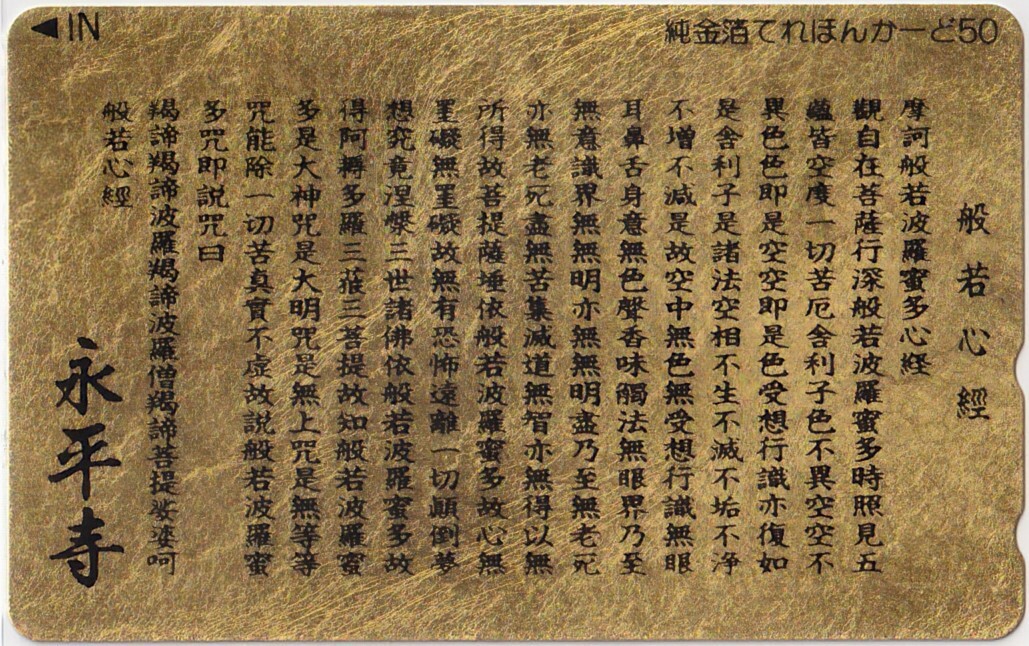 ◀IN
純金箔てれほんかーど50
般若心經
摩訶般若波羅蜜多心経
觀自在菩薩行深般若波羅蜜多時照見五
蘊皆空度一切苦厄舍利子色不異空空不
異色色即是空空即是色受想行識亦復如
是舍利子是諸法空相不生不滅不垢不浄
不增不減是故空中無色無受想行識無眼
耳鼻舌身意無色聲香味觸法無眼界乃至
無意識界無無明亦無無明盡乃至無老死
亦無老死盡無苦集滅道無智亦無得以無
所得故菩提薩埵依般若波羅蜜多故心無
罣礙無罣礙故無有恐怖遠離一切顚倒夢
想究竟涅槃三世諸佛依般若波羅蜜多故
得阿耨多羅三藐三菩提故知般若波羅蜜
多是大神咒是大明咒是無上咒是無等等
咒能除一切苦真實不虚故説般若波羅蜜
多咒即説咒曰
羯諦羯諦波羅羯諦波羅僧羯諦菩提娑婆呵
般若心經
永平寺